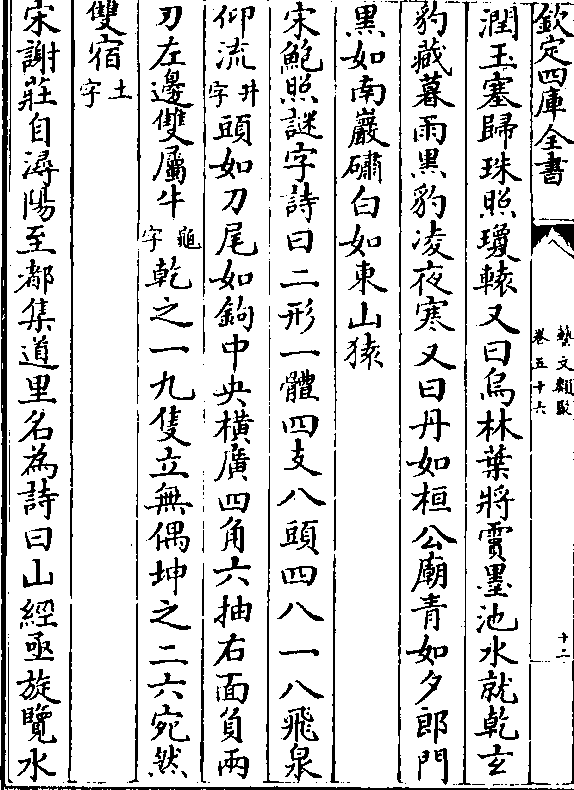 欽定四庫全書
藝文類聚
卷五十六
十二
潤玉塞歸珠照瓊轅又曰烏林葉將賈墨池水就乾玄
豹藏暮雨黑豹凌夜寒又曰丹如桓公廟青如夕郎門
黑如南巖礴白如東山猿
宋鮑照謎字詩曰二形一體四支八頭四八一八飛泉
仰流井字頭如刀尾如鉤中央橫廣四角六抽右面負兩
刃左邊雙屬牛龜字乾之一九隻立無偶坤之二六宛然
雙宿土字
宋謝莊自潯陽至都集道里名為詩曰山經亟旋覽水